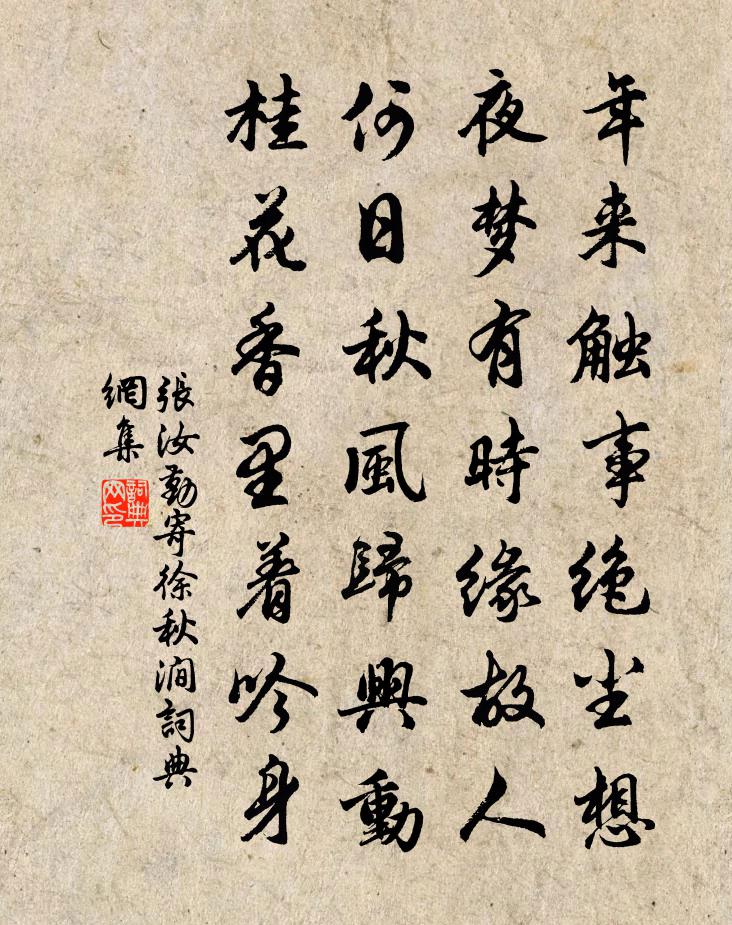 年来触事绝尘想
夜梦有時缘故人
何日秋風歸興動
桂花香里着吟身
張汝勤寄徐秋澗詞典
網集
詞典
网印